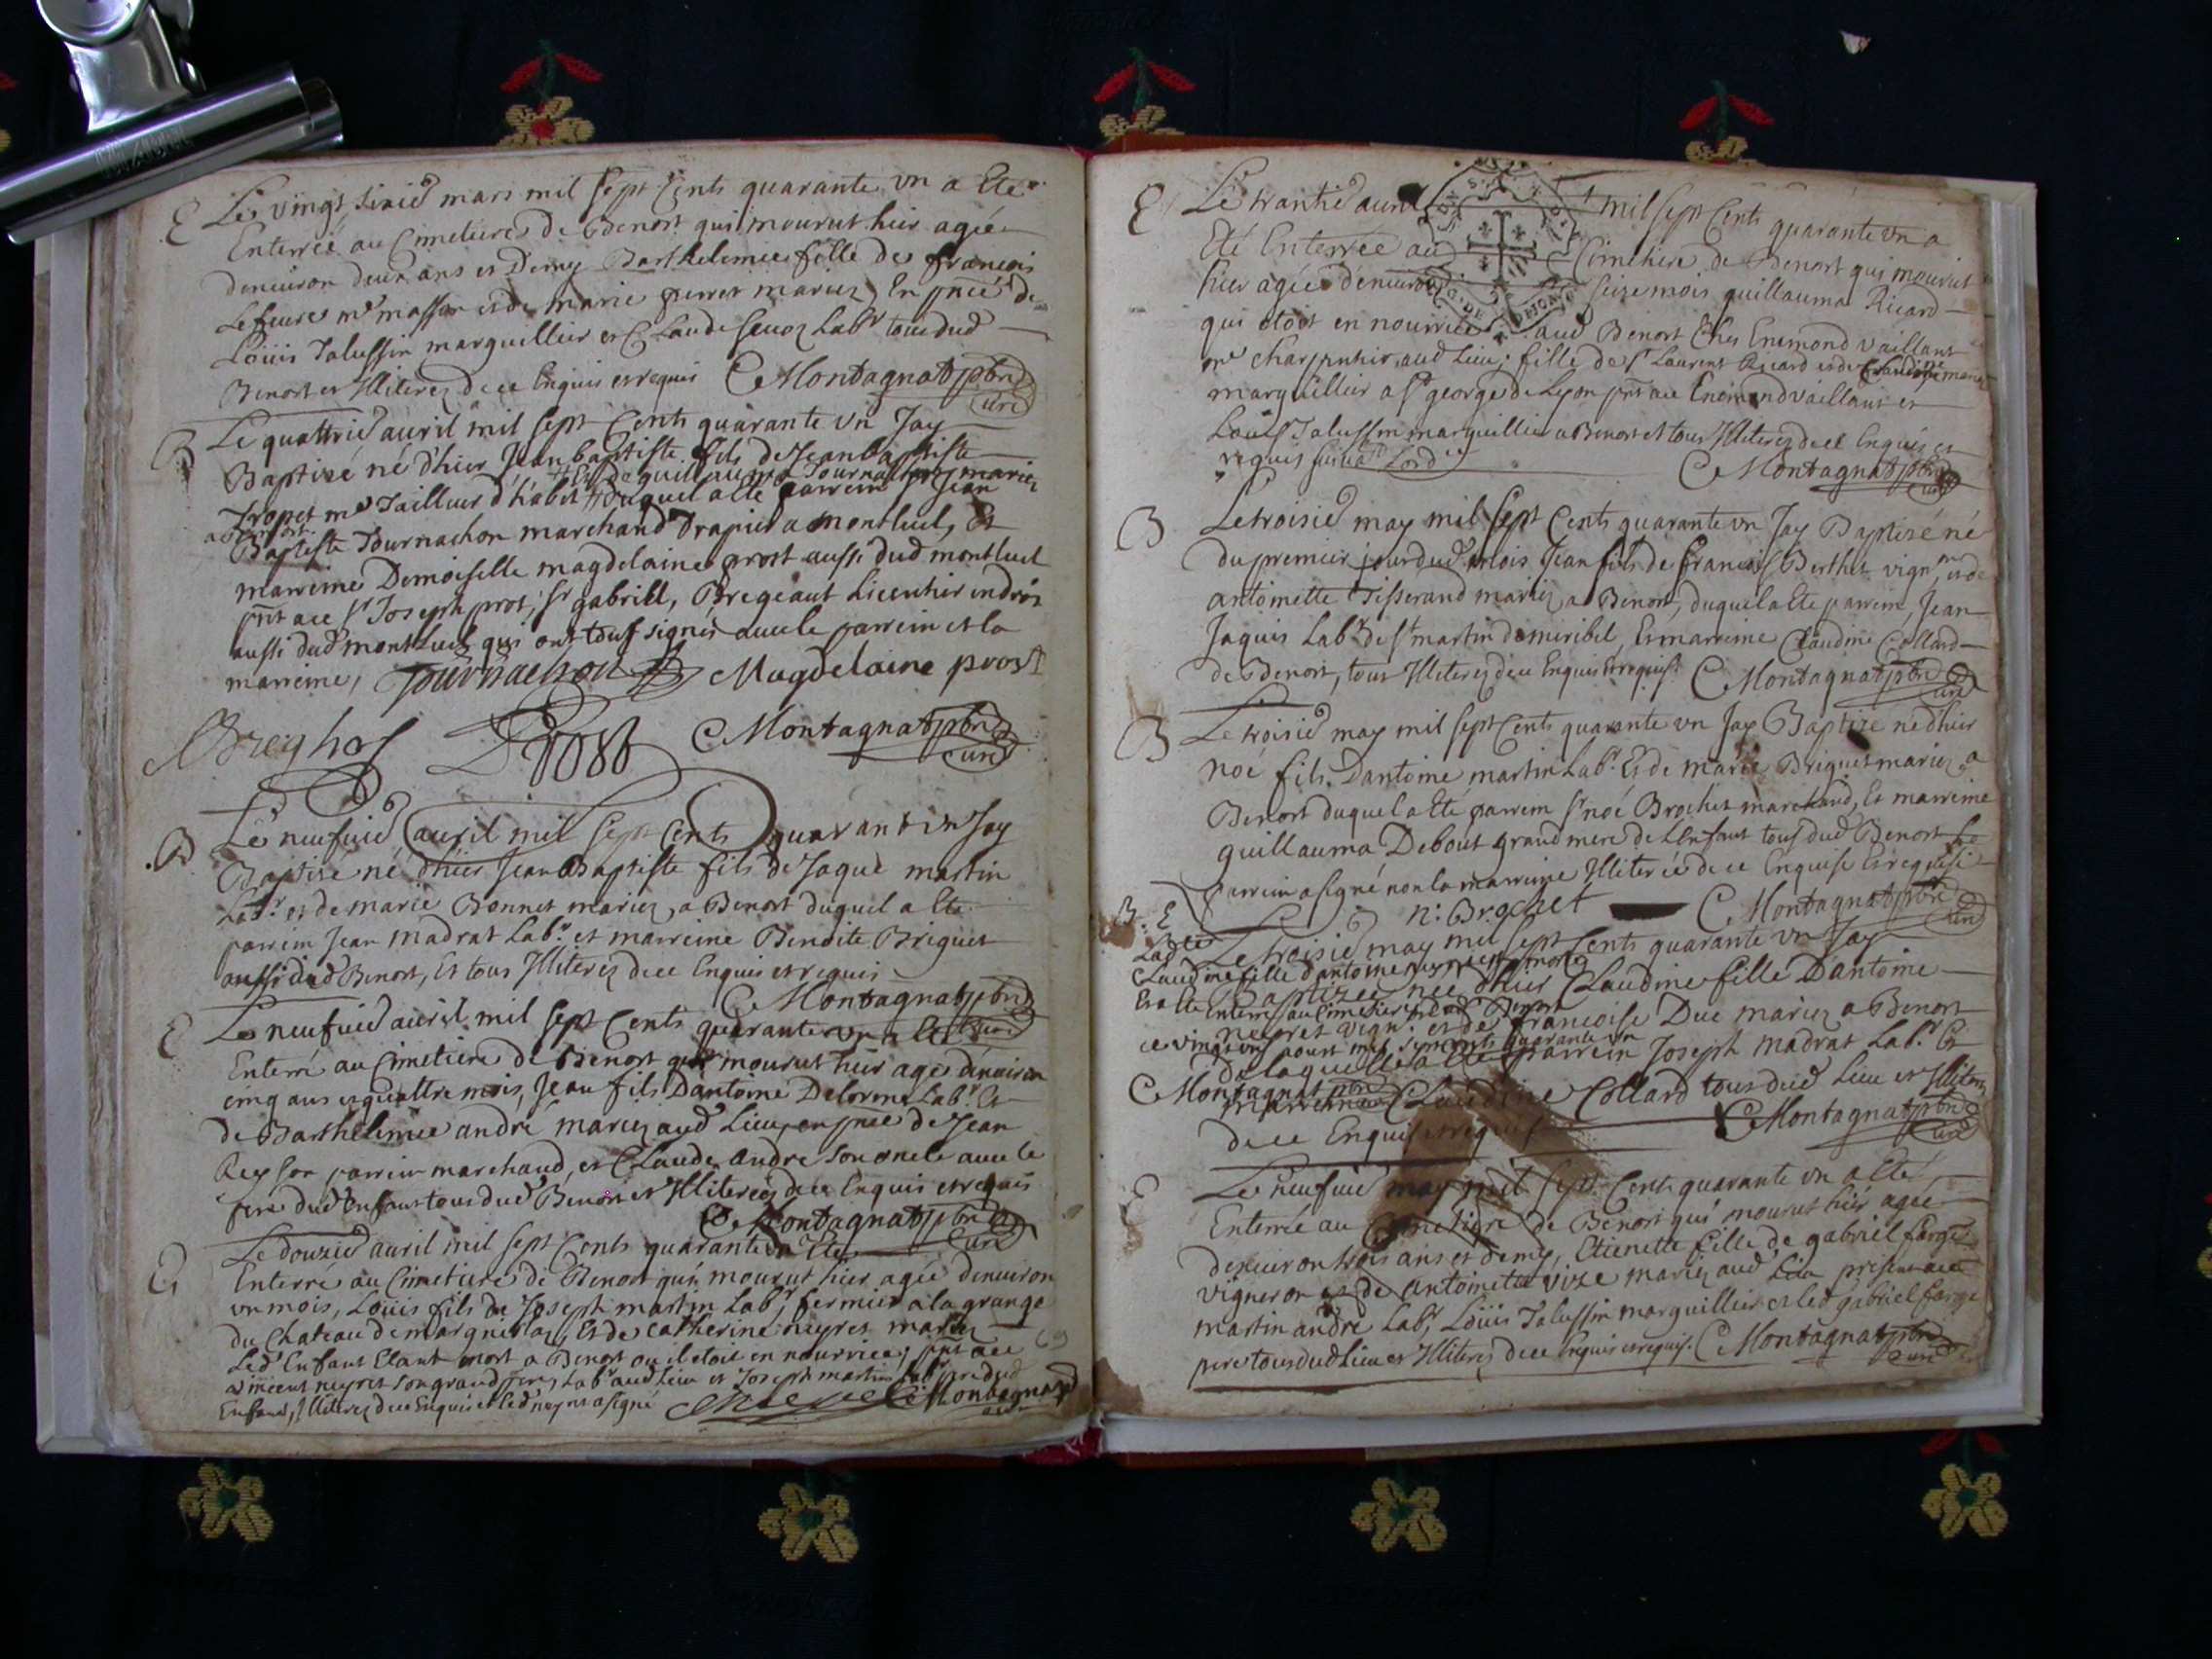 E Le vingt sixie mars mil sept Cents quarante vn a Ete
Enterrée au Cimetiere de Benost qui mourut hier agée
denuiron deux ans et Demy Barthelemie fille de francois
Lefeure me masson et de marie perret mariez, En pnce de
Loüis Jalussin marguillier et Claude Labr tous dud
Benost et Illiterez de ce Enquis et requis C Montagnat pbre
curé
B Le quattrie auril mil sept Cents quarante vn Jay
Baptizé né d'hier Jean baptiste fils de Jean baptiste
Et de guillauma Tournachon mariez
Tropet me Tailleur d'habit duquel a Eté parrein sr Jean
a Benost
Baptiste Tournachon marchand Drapier a Montluel, Et
marreine Demoiselle magdelaine prost aussi dud montluel
pnt ace sr Joseph prost, sr gabriel, Bregeaut Licentier en droi
aussi dud montluel qui ont tous signés auec le parrein et la
marreine, Tournachon Magdelaine prost
Breghot Prost C Montagnat pbre
curé
B Le neufuie auril mil sept Cents quarante vn Jay
Baptizé né d'hier Jean Baptiste fils de Jaque martin
Labr et de marie Bonnet mariez, a Benost duquel a Eté
parrein Jean madrat Labr. et marreine Benoite Briguet
aussi dud Benost, Et tous Illiterez de ce Enquis et requis
C Montagnat pbre
curé
E Le neufuie auril mil sept Cents quarante vn a Eté
Enterré au Cimetiere de Benost qui mourut hier age denuiron
cinq ans et quattre mois, Jean fils Dantoine Delorme Labr. Et
de Barthelemie andré mariez aud Lieu, en pnce de Jean
Rey son parrein marchand, et Claude andre son oncle auec le
pere dud Enfant tous dud Benost et Illiterez de ce Enquis et requis
C Montagnat pbre
curé
E Le douzie auril mil sept Cents quarante vn a Eté
Enterré au Cimetiere de Benost qui mourut hier agée denuiron
vn mois, Loüis fils de Joseph martin Labr, fermier a la grange
du Chateau de margnolas, Et de catherine neyret mariez
Led. Enfant Etant mort a Benost ou il etoit en nourrice; pnt ace
vincent neyret son grand pere, Labr aud Lieu et Joseph martin Labr pere dud
Enfant, Illiterez de ce Enquis et led neyret a signé C Montagnat
curé
E Le trantie auril mil sept Cents quarante vn a
Eté Enterrée au Cimetiere de Benost qui mourut
hier agée denuiron seize mois guillauma Ricard
qui etoit en nourrice aud Benost Ches Enemond vaillant
me charpentier aud Lieu; fille de sr Laurent Ricard et de Claudine marie
marguillier a St george de Lyon pnt ace Enemond vaillant et
Loüis Jalussin marguillier a Benost et tous Illiterez de ce Enquis et
requis suiuat Lordce
C Montagnat pbre
curé
B Le troisie may mil sept Cents quarante vn Jay Baptizé né
du premier jour dud mois Jean fils de francois Berthet vignon et de
antoinette Tisserand mariez a Benost, duquel a Eté parrein, Jean
Jaquis Labr de St martin de miribel, Et marreine Claudine Collard
de Benost, tous Illiterez de ce Enquis et requis C Montagnat pbre
curé
B Le troisie may mil sept Cents quarante vn Jay Baptize né d'hier
noé fils Dantoine martin Labr. Et de marie Briguet mariez a
Benost duquel a Eté parrein sr noé Brochet marchand, Et marreine
guillauma Debout grand mere de LEnfant tous dud Benost Le
parrein a signé non la marreine Illiterée de ce Enquise et requise
n: Brochet C Montagnat pbre
curé
B. E Le troisie may mil sept Cents quarante vn Jay
Ladte
Claudine fille dantoine neyret est morte
Baptizée née d'hier Claudine fille Dantoine
Et a Eté Enterrée au Cimetiere de Benost
neyret vign: et de francoise Duc mariez a Benost
ce vingt vn aoust mil sept cents quarante vn
de laquelle a Eté parrein Joseph madrat Labr. Et
C Montagnat pbre
marreine Claudine Collard tous dud Lieu et Illiterez
de ce Enquis et requis C Montagnat pbre
curé
E Le neufuie may mil sept Cents quarante vn a Eté
Enterrée au Cimetiere de Benost qui mourut hier agée
denuiron trois ans et demy, Etienette fille de gabriel farge
vigneron et de antoinette vize mariez aud Lieu present ace
martin andré Labr, Loüis Jalussin marguillier et led gabriel farge
pere tous dud Lieu et Illiterez de ce Enquis et requis. C Montagnat pbre
curé